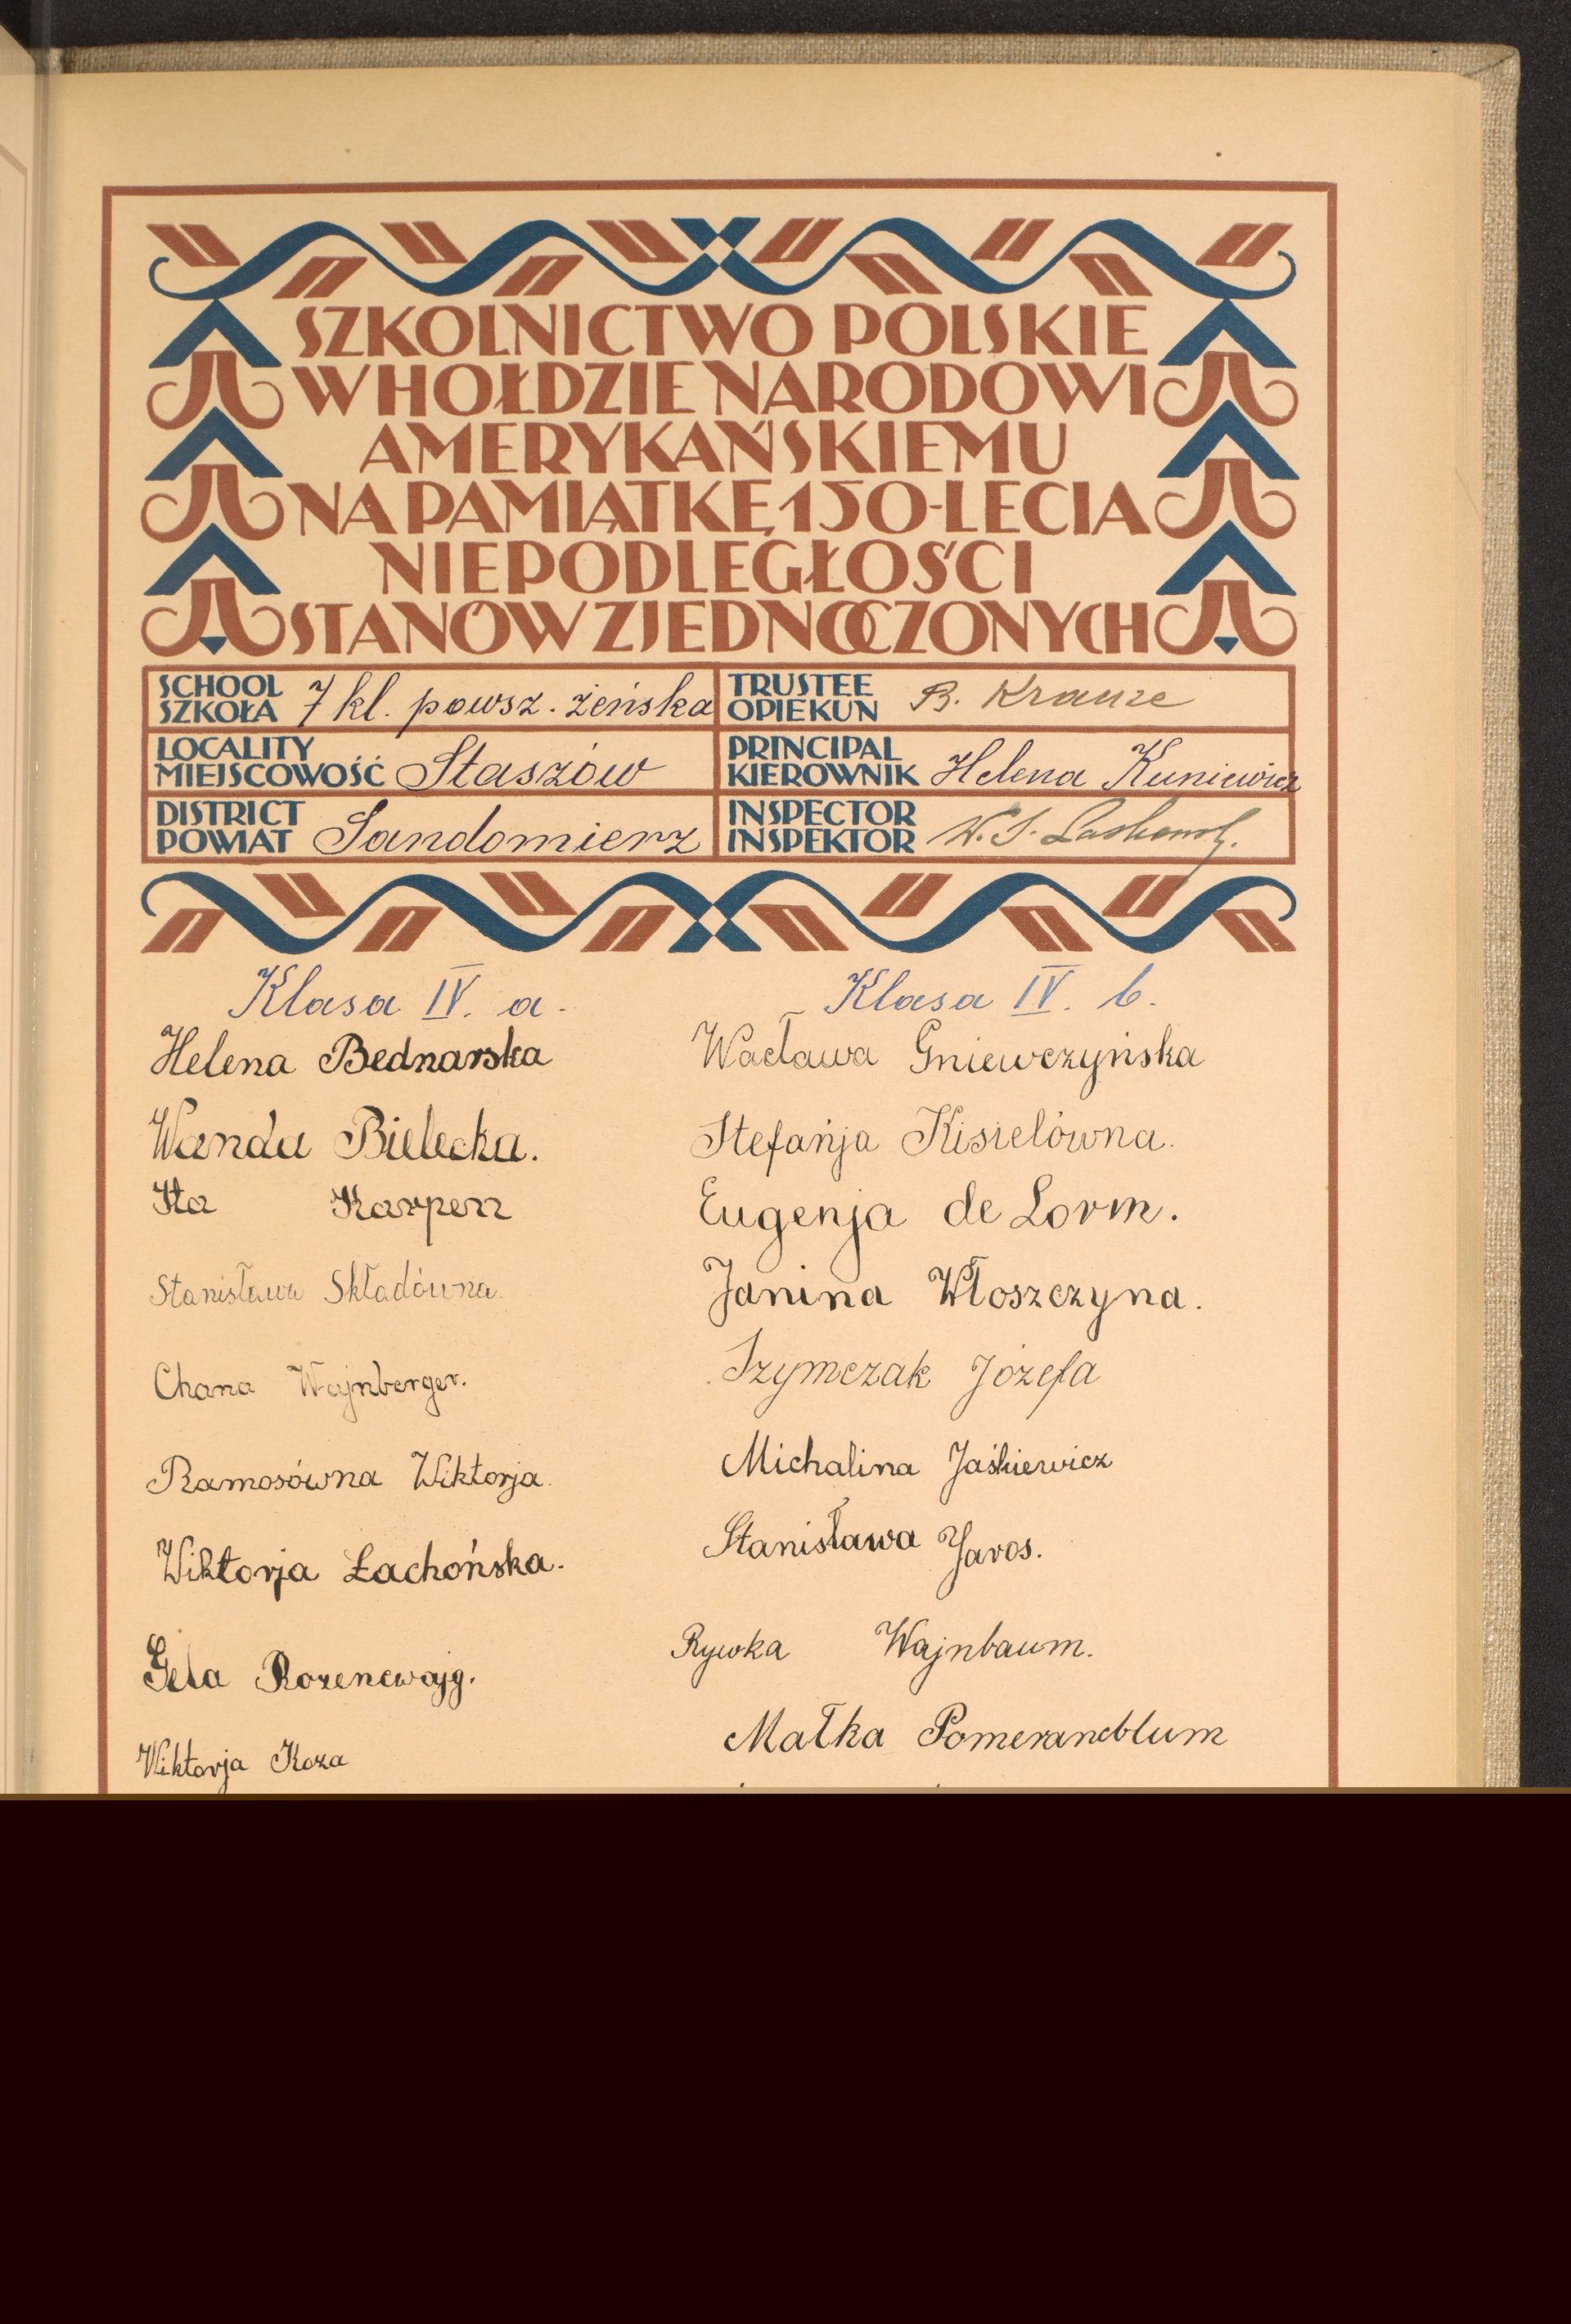 SZKOLNICTWO POLSKIE
W HOŁDZIE NARODOWI
AMERYKAŃSKIEMU
NA PAMIĄTKĘ 150-LECIA
NIEPODLEGŁOŚCI
STANÓW ZJEDNOCZONYCH
SCHOOL
SZKOŁA 7 kl. powsz. żeńska
TRUSTEE
OPIEKUN B. Krauze
LOCALITY
MIEJSCOWOŚĆ Staszów
PRINCIPAL
KIEROWNIK Helena Kuniewicz
DISTRICT
POWIAT Sandomierz
INSPECTOR
INSPEKTOR W. S.
Klasa IV. a.
Helena Bednarska
Wanda Bielecka.
Ita Karpen
Stanisława Składówna.
Chana Wajnberger.
Ramosówna Wiktorja
Wiktorja Łachońska.
Gela Rozencwajg.
Wiktorja Koza
Klasa IV. b.
Wacława Gniewczyńska
Stefańja Kisielówna.
Eugenja de Lorm.
Janina Włoszczyna.
Szymczak Józefa
Michalina Jaśkiewicz
Stanisława Jaros.
Rywka Wajnbaum.
Małka Pomerancblum